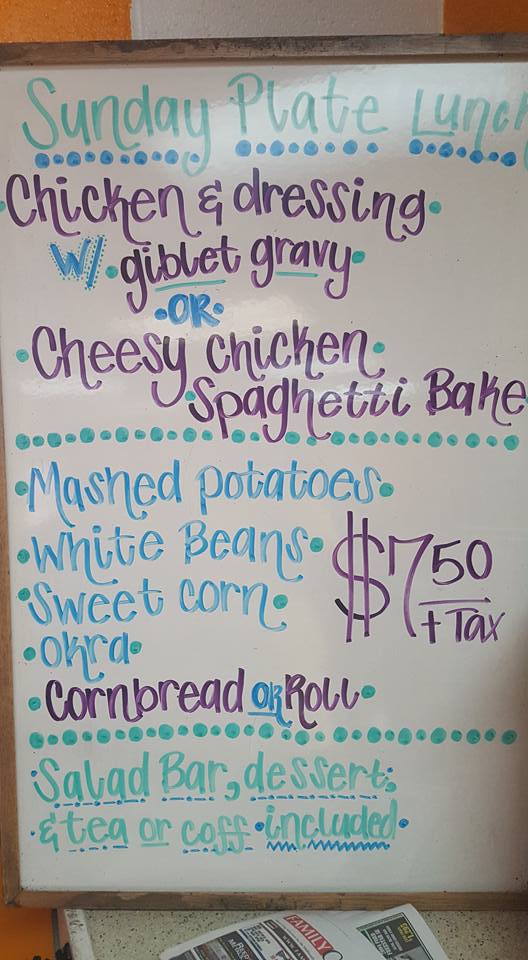 Sunday Plate Lunch
Chicken & dressing
W/ giblet gravy
OR
Cheesy chicken
Spaghetti Bake
Mashed potatoes
White Beans
Sweet corn
okra
$7.50
+ Tax
Cornbread OR Roll
Salad Bar, dessert,
& tea or coff included
FAMILY